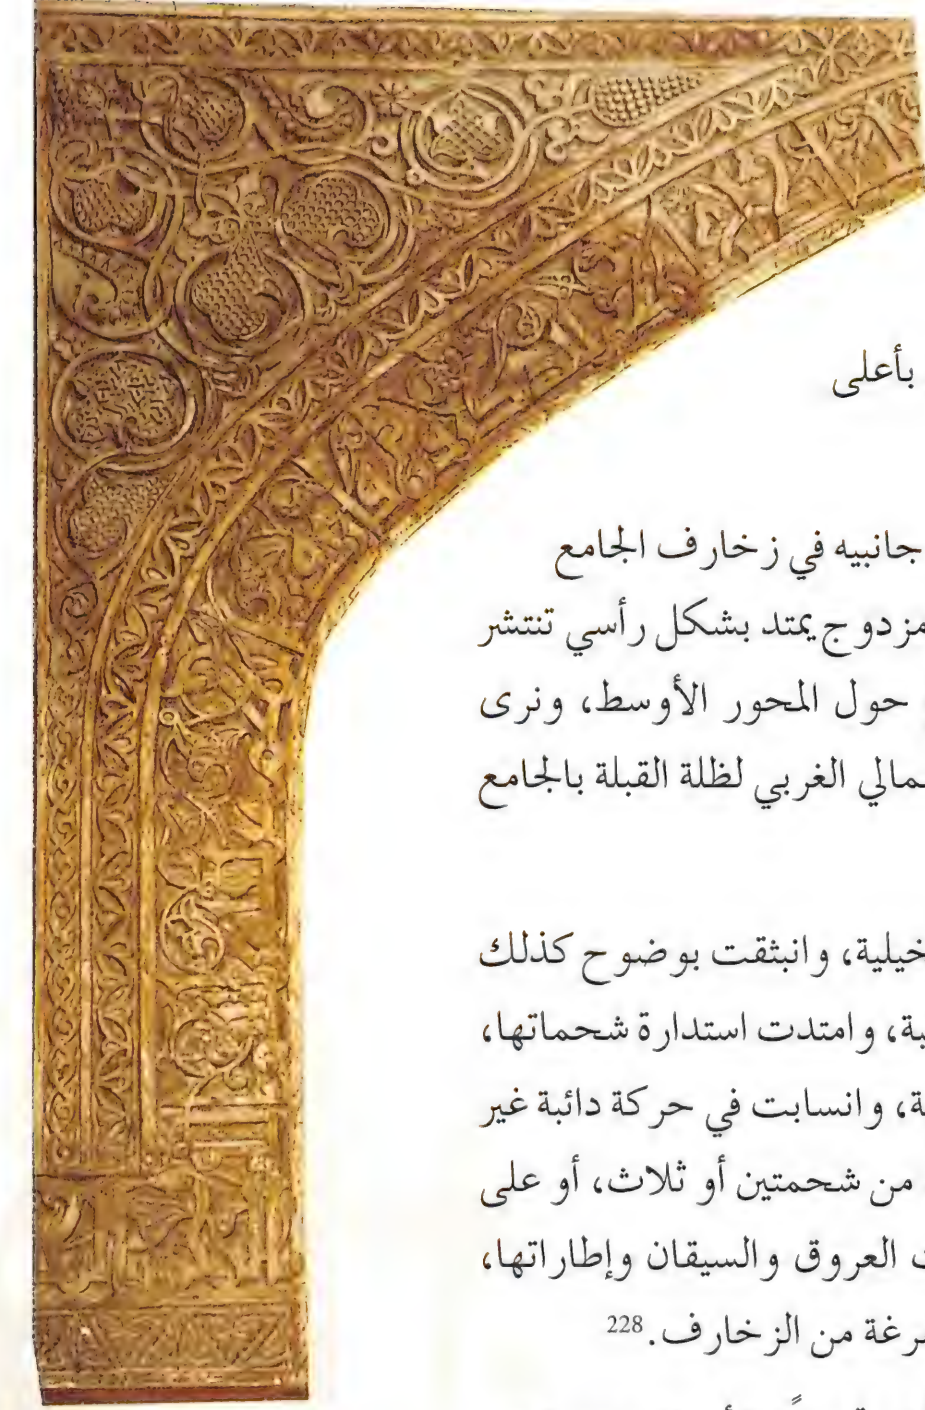 بأعلى
جانبيه في زخارف الجامع
مزدوج يمتد بشكل رأسي تنتشر
حول المحور الأوسط، ونرى
مالي الغربي لظلة القبلة بالجامع
خيلية، وانبثقت بوضوح كذلك
بة، وامتدت استدارة شحماتها،
ة، وانسابت في حركة دائبة غير
من شحمتين أو ثلاث، أو على
ت العروق والسيقان وإطاراتها،
رغة من الزخارف.228